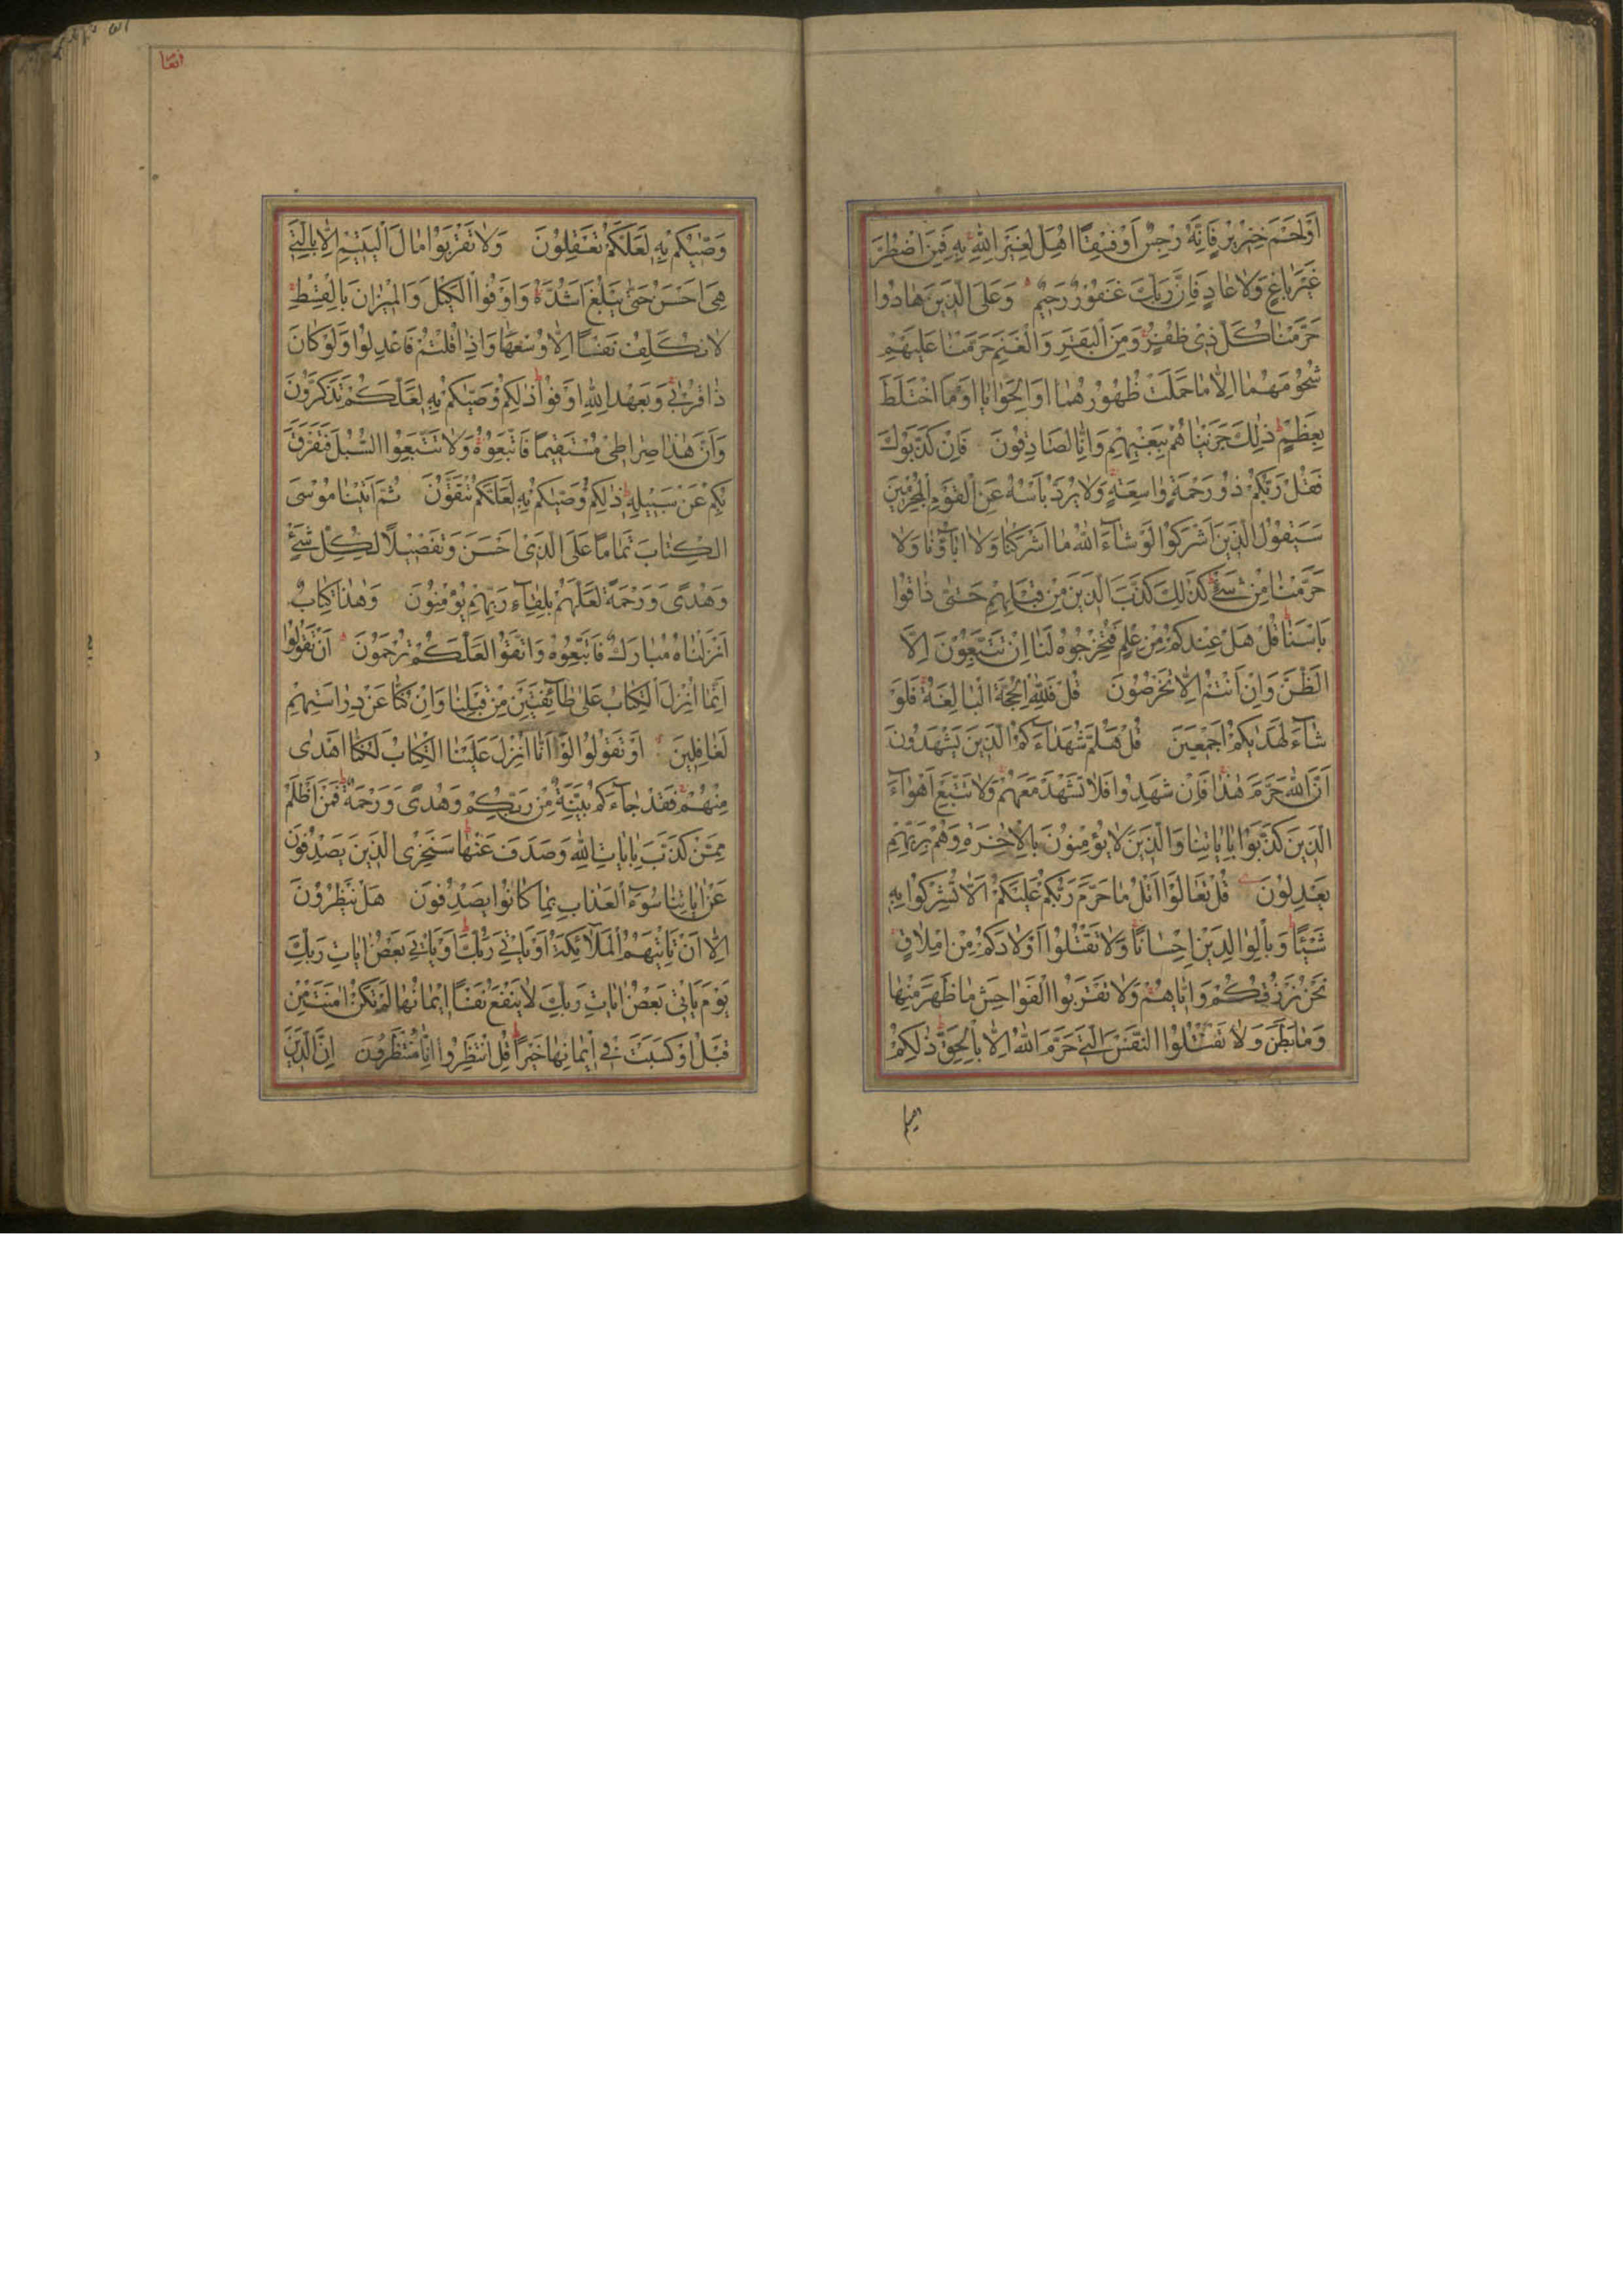 اَوْ لَحْمَ خِنْزِيرٍ فَاِنَّهُ رِجْسٌ اَوْ فِسْقًا اُهِلَّ لِغَيْرِ اللّٰهِ بِهِ فَمَنِ اضْطُرَّ
غَيْرَ بَاغٍ وَلَا عَادٍ فَاِنَّ رَبَّكَ غَفُورٌ رَحِيمٌ وَعَلَى الَّذِينَ هَادُوا
حَرَّمْنَا كُلَّ ذِي ظُفُرٍ وَمِنَ الْبَقَرِ وَالْغَنَمِ حَرَّمْنَا عَلَيْهِمْ
شُحُومَهُمَا اِلَّا مَا حَمَلَتْ ظُهُورُهُمَا اَوِ الْحَوَايَا اَوْ مَا اخْتَلَطَ
بِعَظْمٍ ذٰلِكَ جَزَيْنَاهُمْ بِبَغْيِهِمْ وَاِنَّا لَصَادِقُونَ فَاِنْ كَذَّبُوكَ
فَقُلْ رَبُّكُمْ ذُو رَحْمَةٍ وَاسِعَةٍ وَلَا يُرَدُّ بَاْسُهُ عَنِ الْقَوْمِ الْمُجْرِمِينَ
سَيَقُولُ الَّذِينَ اَشْرَكُوا لَوْ شَآءَ اللّٰهُ مَا اَشْرَكْنَا وَلَا اٰبَآؤُنَا وَلَا
حَرَّمْنَا مِنْ شَيْءٍ كَذٰلِكَ كَذَّبَ الَّذِينَ مِنْ قَبْلِهِمْ حَتّٰى ذَاقُوا
بَاْسَنَا قُلْ هَلْ عِنْدَكُمْ مِنْ عِلْمٍ فَتُخْرِجُوهُ لَنَا اِنْ تَتَّبِعُونَ اِلَّا
الظَّنَّ وَاِنْ اَنْتُمْ اِلَّا تَخْرُصُونَ قُلْ فَلِلّٰهِ الْحُجَّةُ الْبَالِغَةُ فَلَوْ
شَآءَ لَهَدٰيكُمْ اَجْمَعِينَ قُلْ هَلُمَّ شُهَدَآءَكُمُ الَّذِينَ يَشْهَدُونَ
اَنَّ اللّٰهَ حَرَّمَ هٰذَا فَاِنْ شَهِدُوا فَلَا تَشْهَدْ مَعَهُمْ وَلَا تَتَّبِعْ اَهْوَآءَ
الَّذِينَ كَذَّبُوا بِاٰيَاتِنَا وَالَّذِينَ لَا يُؤْمِنُونَ بِالْاٰخِرَةِ وَهُمْ بِرَبِّهِمْ
يَعْدِلُونَ قُلْ تَعَالَوْا اَتْلُ مَا حَرَّمَ رَبُّكُمْ عَلَيْكُمْ اَلَّا تُشْرِكُوا بِهِ
شَيْئًا وَبِالْوَالِدَيْنِ اِحْسَانًا وَلَا تَقْتُلُوا اَوْلَادَكُمْ مِنْ اِمْلَاقٍ
نَحْنُ نَرْزُقُكُمْ وَاِيَّاهُمْ وَلَا تَقْرَبُوا الْفَوَاحِشَ مَا ظَهَرَ مِنْهَا
وَمَا بَطَنَ وَلَا تَقْتُلُوا النَّفْسَ الَّتِي حَرَّمَ اللّٰهُ اِلَّا بِالْحَقِّ ذٰلِكُمْ
وَصّٰيكُمْ بِهِ لَعَلَّكُمْ تَعْقِلُونَ وَلَا تَقْرَبُوا مَالَ الْيَتِيمِ اِلَّا بِالَّتِي
هِيَ اَحْسَنُ حَتّٰى يَبْلُغَ اَشُدَّهُ وَاَوْفُوا الْكَيْلَ وَالْمِيزَانَ بِالْقِسْطِ
لَا نُكَلِّفُ نَفْسًا اِلَّا وُسْعَهَا وَاِذَا قُلْتُمْ فَاعْدِلُوا وَلَوْ كَانَ
ذَا قُرْبٰى وَبِعَهْدِ اللّٰهِ اَوْفُوا ذٰلِكُمْ وَصّٰيكُمْ بِهِ لَعَلَّكُمْ تَذَكَّرُونَ
وَاَنَّ هٰذَا صِرَاطِي مُسْتَقِيمًا فَاتَّبِعُوهُ وَلَا تَتَّبِعُوا السُّبُلَ فَتَفَرَّقَ
بِكُمْ عَنْ سَبِيلِهِ ذٰلِكُمْ وَصّٰيكُمْ بِهِ لَعَلَّكُمْ تَتَّقُونَ ثُمَّ اٰتَيْنَا مُوسَى
الْكِتَابَ تَمَامًا عَلَى الَّذِي اَحْسَنَ وَتَفْصِيلًا لِكُلِّ شَيْءٍ
وَهُدًى وَرَحْمَةً لَعَلَّهُمْ بِلِقَآءِ رَبِّهِمْ يُؤْمِنُونَ وَهٰذَا كِتَابٌ
اَنْزَلْنَاهُ مُبَارَكٌ فَاتَّبِعُوهُ وَاتَّقُوا لَعَلَّكُمْ تُرْحَمُونَ اَنْ تَقُولُوا
اِنَّمَا اُنْزِلَ الْكِتَابُ عَلٰى طَآئِفَتَيْنِ مِنْ قَبْلِنَا وَاِنْ كُنَّا عَنْ دِرَاسَتِهِمْ
لَغَافِلِينَ اَوْ تَقُولُوا لَوْ اَنَّا اُنْزِلَ عَلَيْنَا الْكِتَابُ لَكُنَّا اَهْدٰى
مِنْهُمْ فَقَدْ جَآءَكُمْ بَيِّنَةٌ مِنْ رَبِّكُمْ وَهُدًى وَرَحْمَةٌ فَمَنْ اَظْلَمُ
مِمَّنْ كَذَّبَ بِاٰيَاتِ اللّٰهِ وَصَدَفَ عَنْهَا سَنَجْزِي الَّذِينَ يَصْدِفُونَ
عَنْ اٰيَاتِنَا سُوءَ الْعَذَابِ بِمَا كَانُوا يَصْدِفُونَ هَلْ يَنْظُرُونَ
اِلَّا اَنْ تَاْتِيَهُمُ الْمَلَآئِكَةُ اَوْ يَاْتِيَ رَبُّكَ اَوْ يَاْتِيَ بَعْضُ اٰيَاتِ رَبِّكَ
يَوْمَ يَاْتِي بَعْضُ اٰيَاتِ رَبِّكَ لَا يَنْفَعُ نَفْسًا اِيمَانُهَا لَمْ تَكُنْ اٰمَنَتْ مِنْ
قَبْلُ اَوْ كَسَبَتْ فِي اِيمَانِهَا خَيْرًا قُلِ انْتَظِرُوا اِنَّا مُنْتَظِرُونَ اِنَّ الَّذِينَ